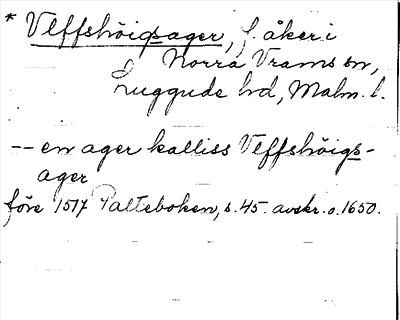 * Vlffshöigsager, f. åker i
Norra Vrams sn,
Luggude hd, Malm. l.
-- en ager kalliss Vlffshöigs-
ager
före 1517 Palteboken, s. 45. avskr. o. 1650.